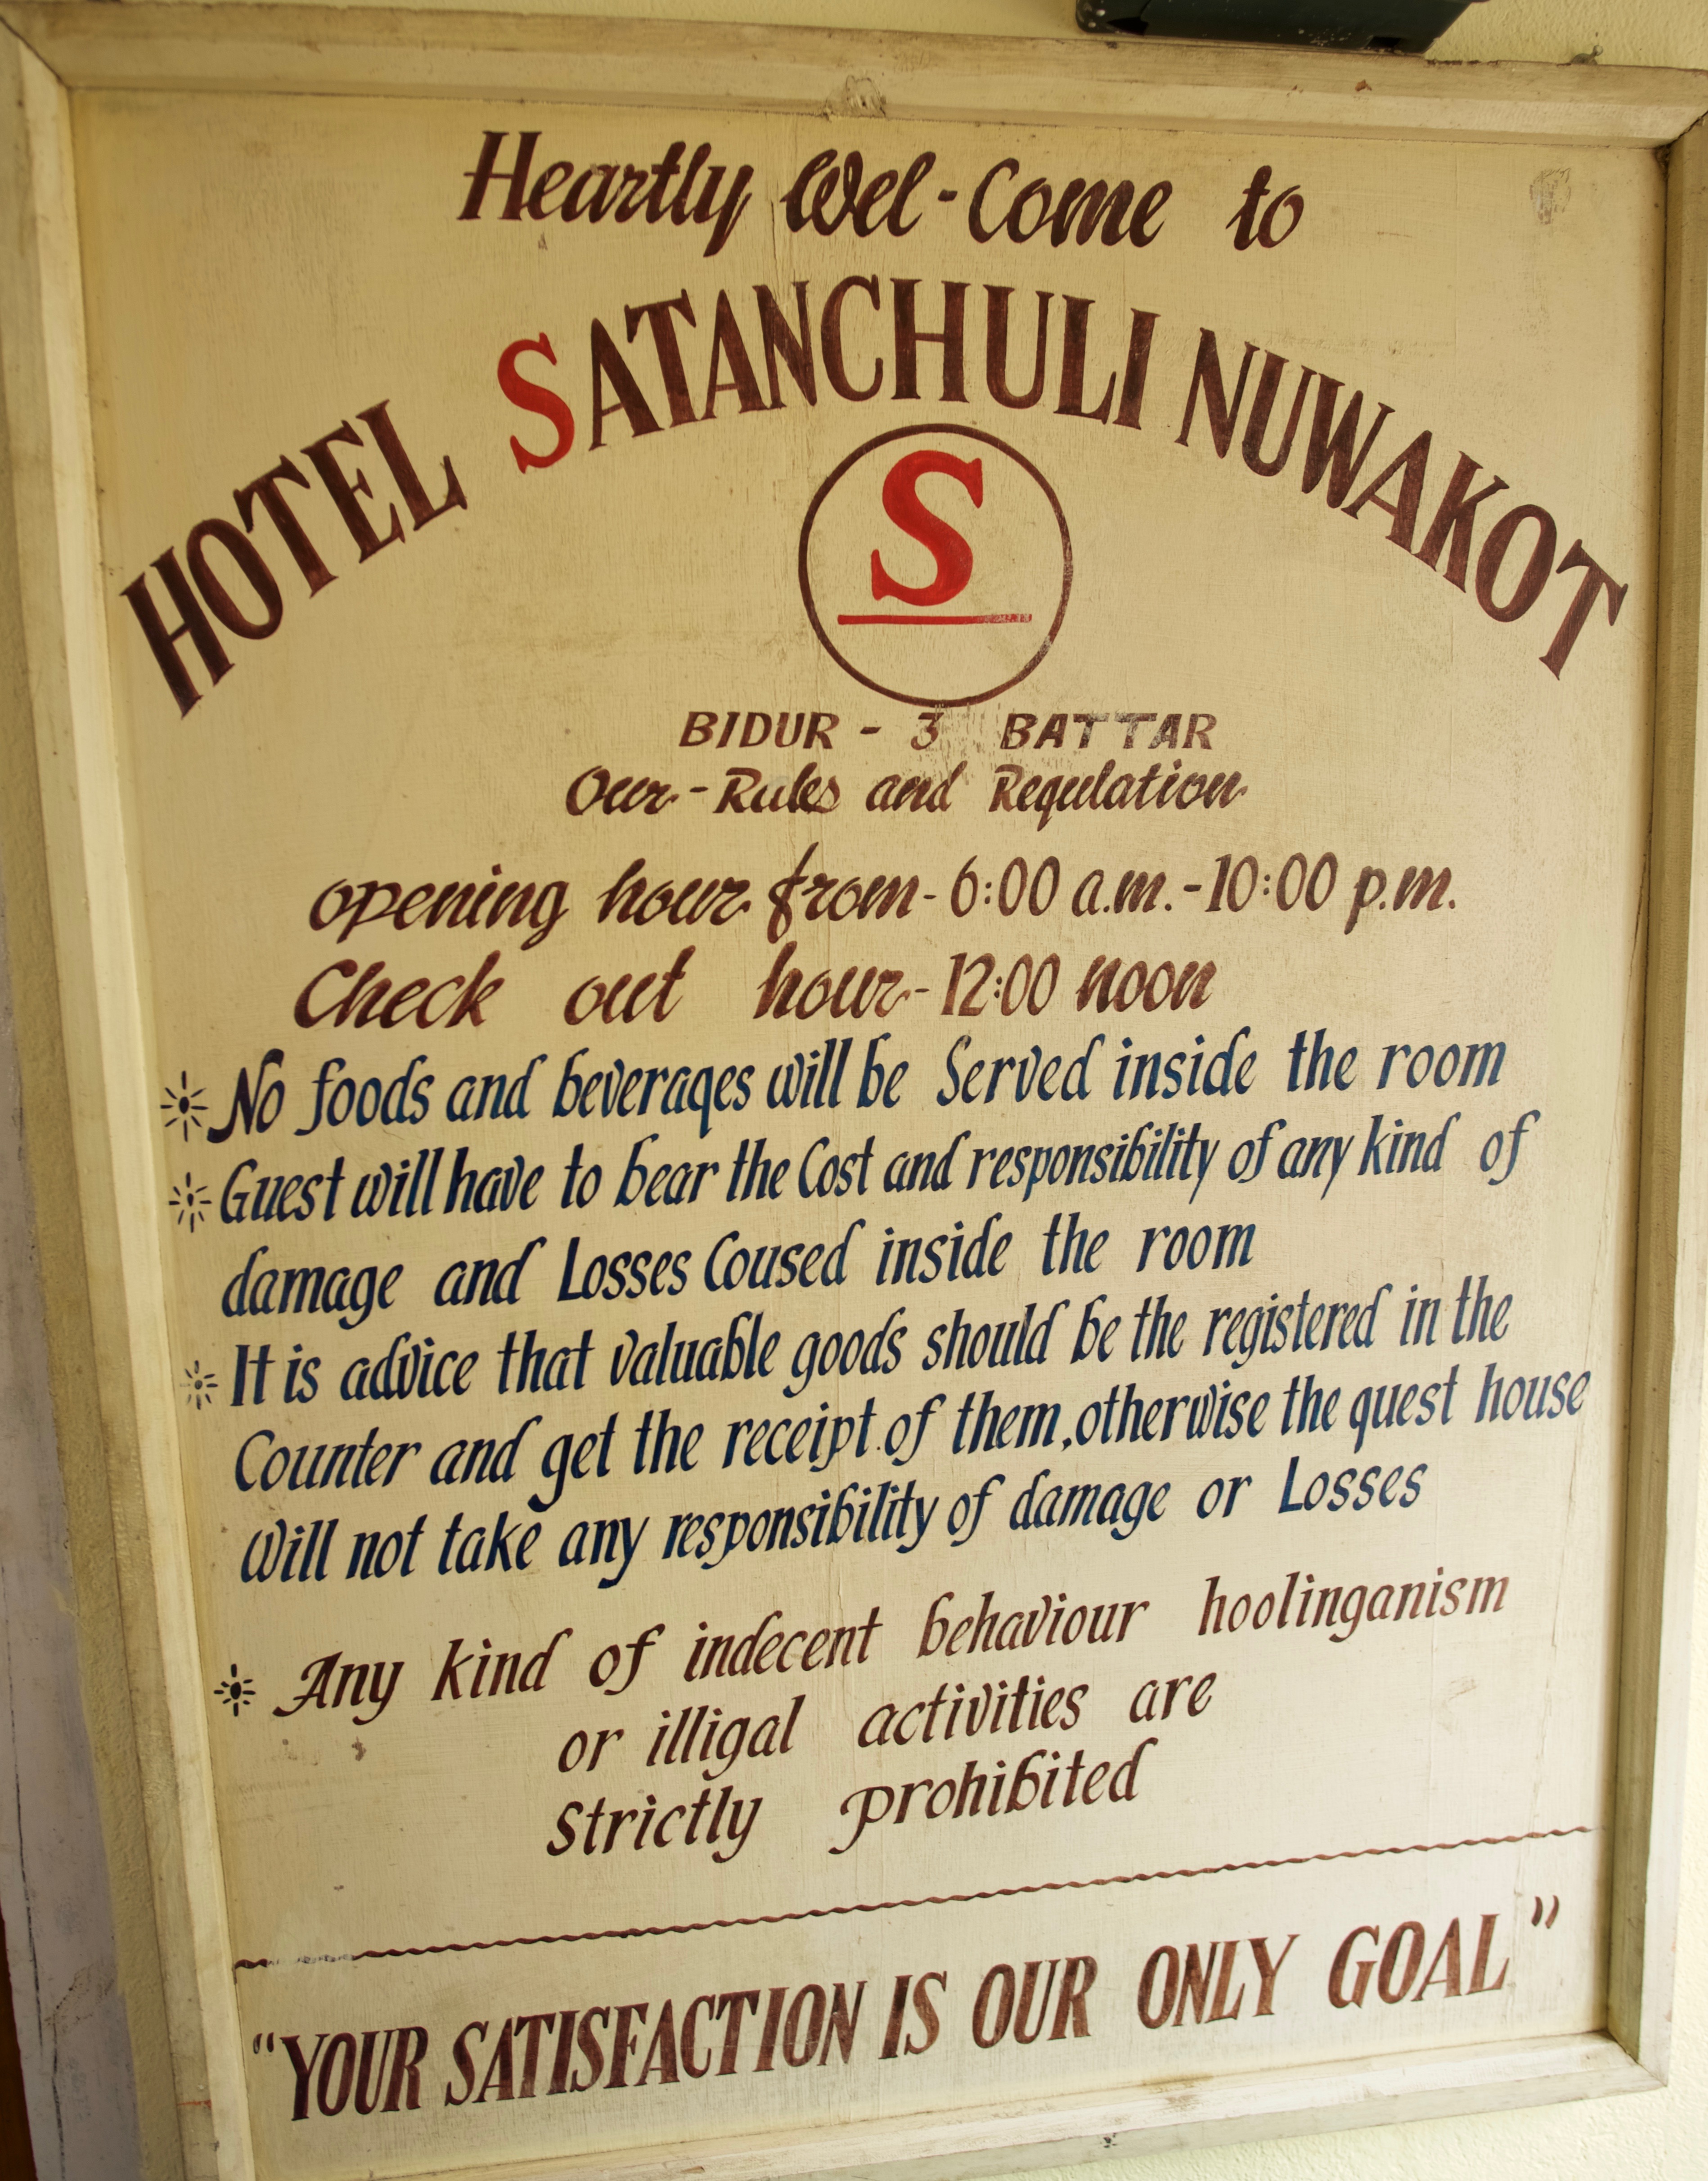 Heartly Wel-Come to
HOTEL SATANCHULI NUWAKOT
S
BIDUR - 3 BATTAR
Our-Rules and Regulation
opening hour from-6:00 a.m.-10:00 p.m.
Check out hour-12:00 noon
No foods and beverages will be Served inside the room
Guest will have to bear the Cost and responsibility of any kind of
damage and Losses Coused inside the room
It is advice that valuable goods should be the registered in the
Counter and get the receipt of them, otherwise the guest house
Will not take any responsibility of damage or Losses
Any kind of indecent behaviour hoolinganism
or illigal activities are
Strictly prohibited
"YOUR SATISFACTION IS OUR ONLY GOAL"